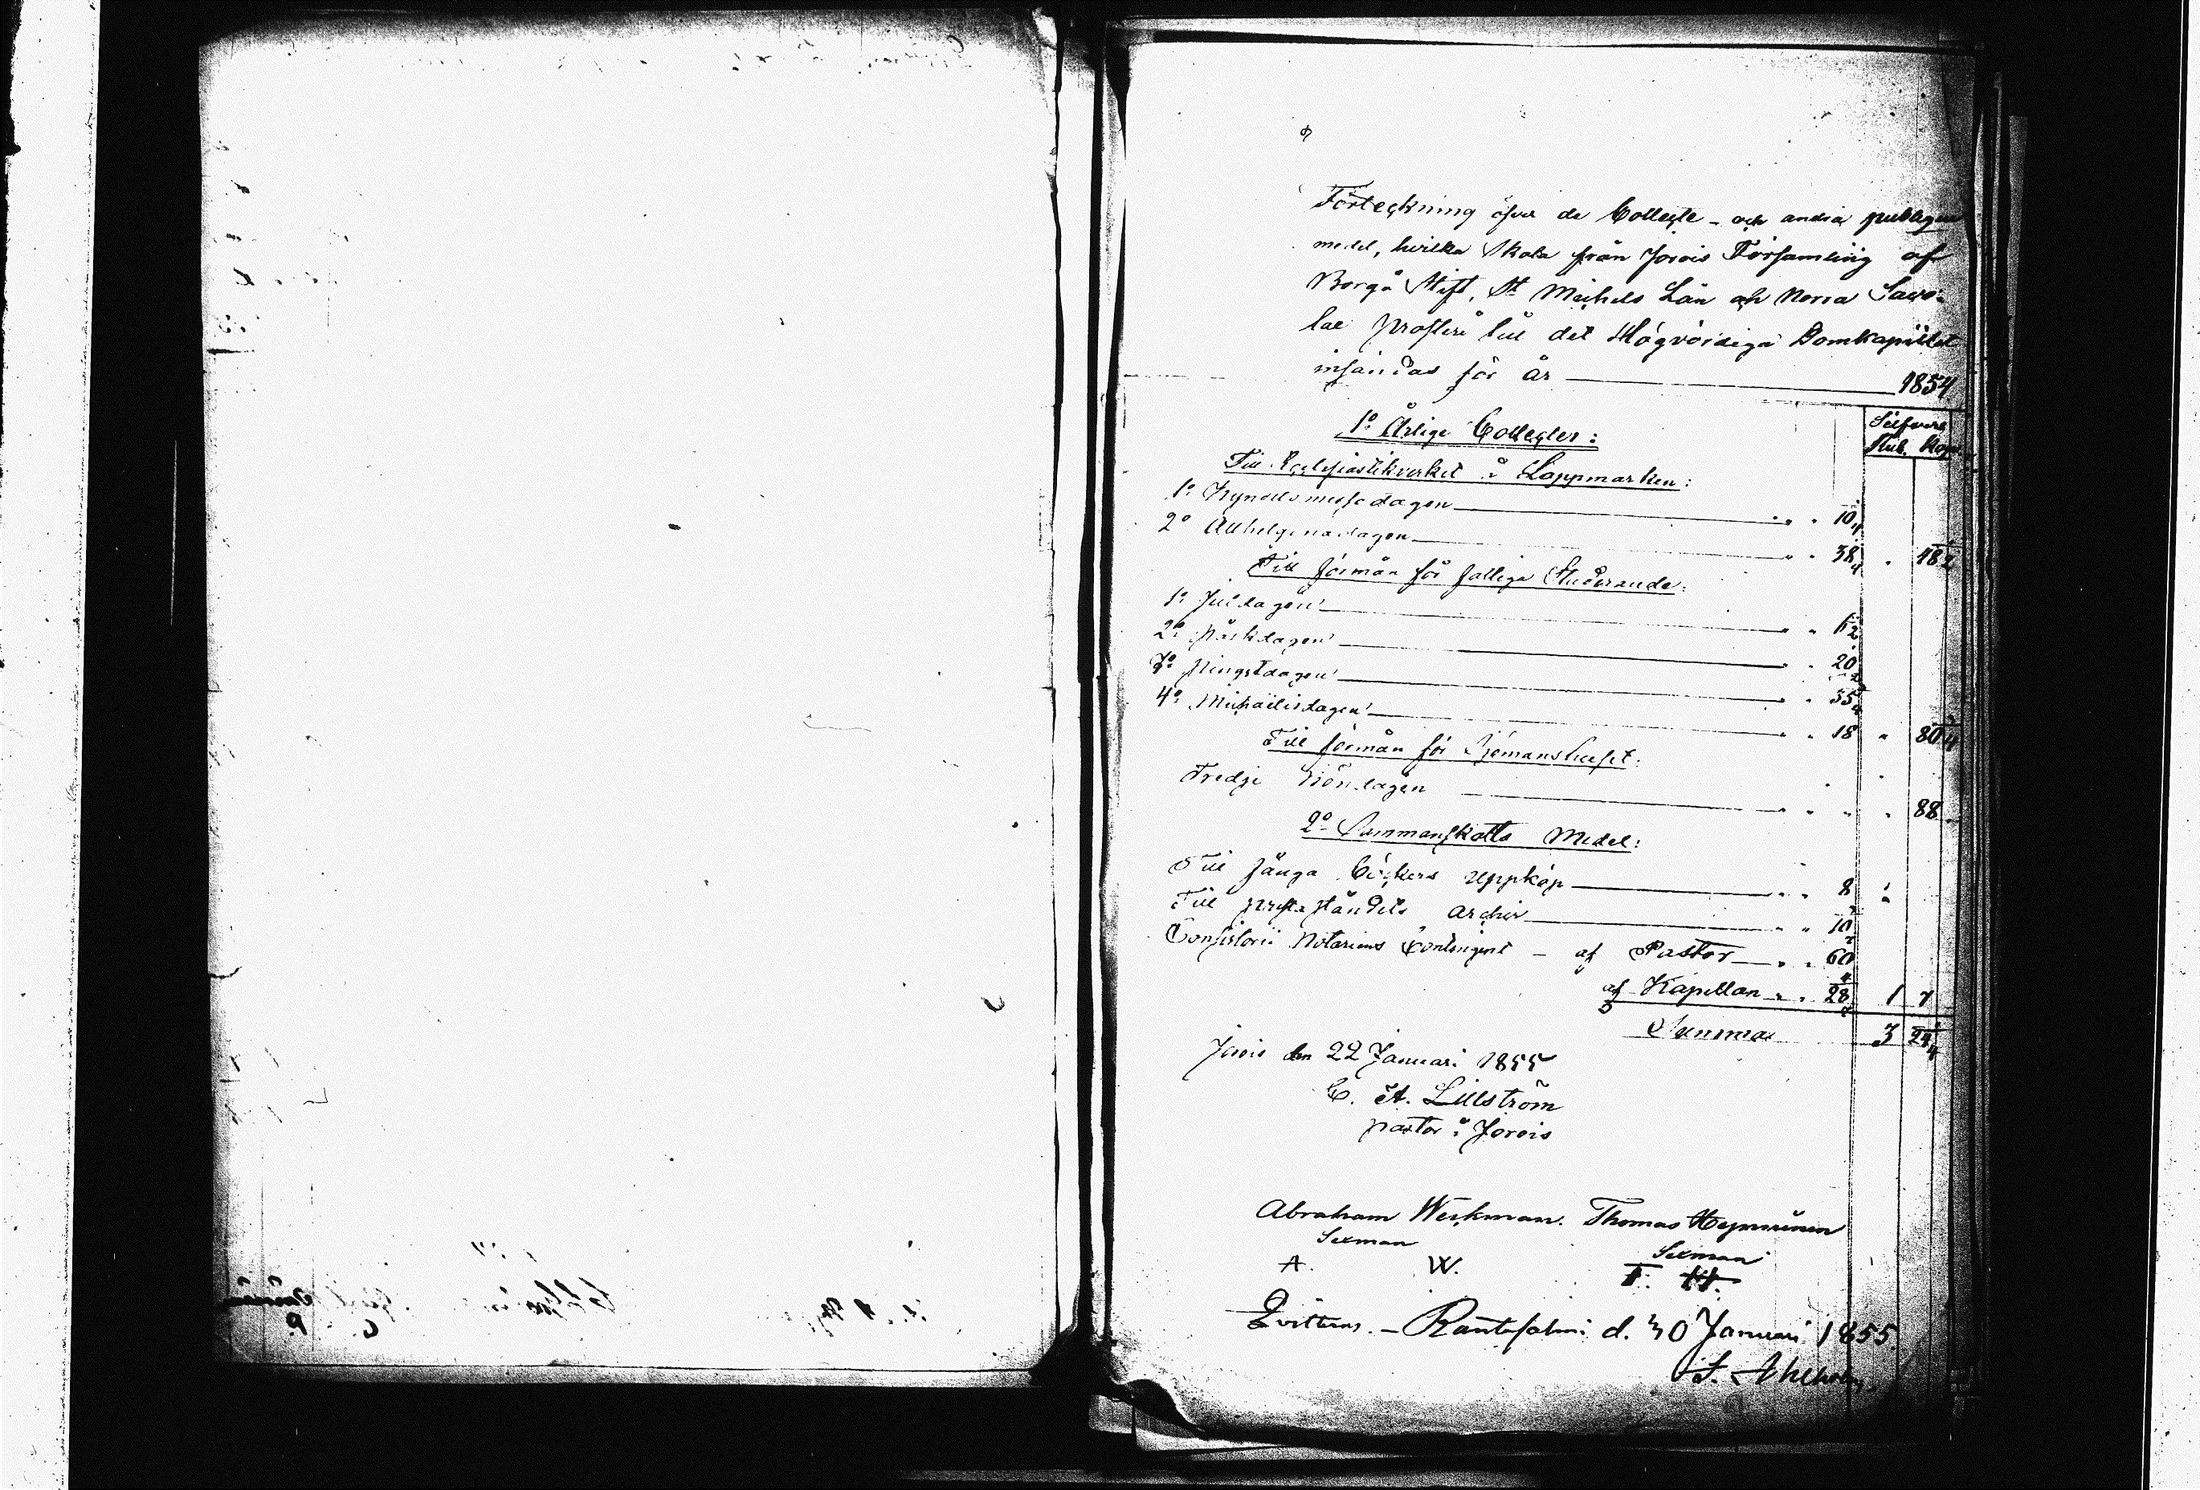 Förteckning öfver de Collecte- och andra publiqua
medel, hvilka skola från Jorois Församling af
Borgå Stift, St Michels Län och Norra Sawo-
lax prosteri till det Högvördiga Domkapitlet
insändas för år 1854
Silfver
Rub. Kop.
1º Årlige Collecter:
Till Ecclesiastikverket i Lappmarken:
1º Kyndelsmessodagen " " 10
2º Allhelgonadagen " " 38 "
Till förmån för fattige Studerande:
1º Juldagen " "
2º Påskdagen " " 20
3º Pingstdagen " " 35
4º Michaëlisdagen " " 18 " 80
Till förmån för Sjömanshuset:
Tredje Böndagen " " " " 88
2º Sammanskotts Medel:
Till fånga Böckers uppköp " " 8
Till preste ståndets archiv " " 10
Consistorii Notariens Contingent - af Pastor " " 60
af Kapellan " " 28 1 7
Summa 3 24
Jorois den 22 Januari 1855
C. A. Lillström
pastor i Jorois
Abraham Werkman. Thomas
Sexman Sexman
A. W. T. H.
Qvitteras. - Rantasalmi d. 30 Januari 1855.
S.